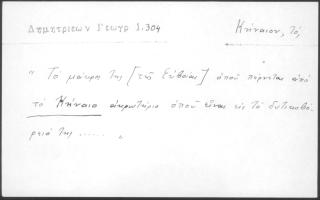 Δημητριέων Γεωγρ 1.304
Κήναιον, τό,
" Το μάκρη της [τῆς Εὐβοίας] ὁποῦ πέρνεται ἀπό
τό Κήναιο ἀκρωτήριο ὁποῦ εἶναι εἰς τό δυτικοβό
ρειό της ...... "